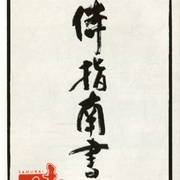 侍指南書
SAMURAI